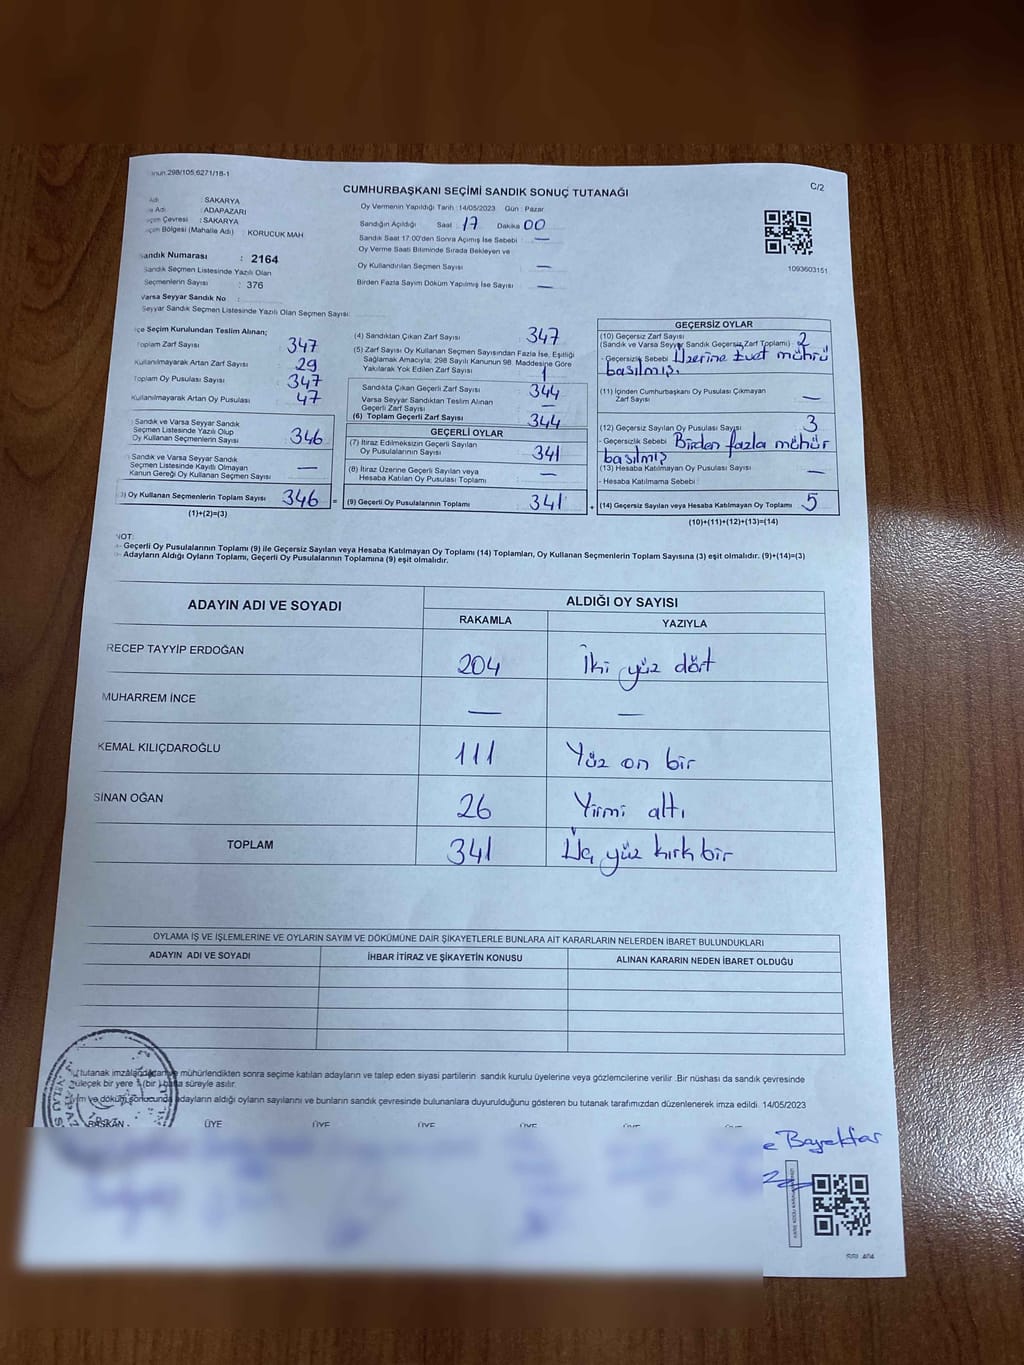 anun.298/105,6271/18-1
C/2
CUMHURBAŞKANI SEÇİMİ SANDIK SONUÇ TUTANAĞI
Adı : SAKARYA
e Adı : ADAPAZARI
eçim Çevresi : SAKARYA
eçim Bölgesi (Mahalle Adı) : KORUCUK MAH
Oy Vermenin Yapıldığı Tarih :14/05/2023 Gün : Pazar
Sandığın Açıldığı Saat : 17 Dakika 00
Sandık Saat 17:00'den Sonra Açımış İse Sebebi : —
Oy Verme Saati Bitiminde Sırada Bekleyen ve
Oy Kullandırılan Seçmen Sayısı : —
Birden Fazla Sayım Döküm Yapılmış İse Sayısı : —
1093603151
Sandık Numarası : 2164
Sandık Seçmen Listesinde Yazılı Olan
Seçmenlerin Sayısı : 376
Varsa Seyyar Sandık No :
Seyyar Sandık Seçmen Listesinde Yazılı Olan Seçmen Sayısı:
lçe Seçim Kurulundan Teslim Alınan;
Toplam Zarf Sayısı 347
Kullanılmayarak Artan Zarf Sayısı 29
Toplam Oy Pusulası Sayısı 347
Kullanılmayarak Artan Oy Pusulası 47
) Sandık ve Varsa Seyyar Sandık
Seçmen Listesinde Yazılı Olup
Oy Kullanan Seçmenlerin Sayısı 346
) Sandık ve Varsa Seyyar Sandık
Seçmen Listesinde Kayıtlı Olmayan
Kanun Gereği Oy Kullanan Seçmen Sayısı —
3) Oy Kullanan Seçmenlerin Toplam Sayısı 346 =
(1)+(2)=(3)
(4) Sandıktan Çıkan Zarf Sayısı 347
(5) Zarf Sayısı Oy Kullanan Seçmen Sayısından Fazla İse, Eşitliği
Sağlamak Amacıyla; 298 Sayılı Kanunun 98. Maddesine Göre
Yakılarak Yok Edilen Zarf Sayısı 1
Sandıkta Çıkan Geçerli Zarf Sayısı 344
Varsa Seyyar Sandıktan Teslim Alınan
Geçerli Zarf Sayısı —
(6) Toplam Geçerli Zarf Sayısı 344
GEÇERLİ OYLAR
(7) İtiraz Edilmeksizin Geçerli Sayılan
Oy Pusulasının Sayısı 341
(8) İtiraz Üzerine Geçerli Sayılan veya
Hesaba Katılan Oy Pusulası Toplamı —
(9) Geçerli Oy Pusulalarının Toplamı 341 +
GEÇERSİZ OYLAR
(10) Geçersiz Zarf Sayısı 2
(Sandık ve Varsa Seyyar Sandık Geçersiz Zarf Toplamı) :
- Geçersizlik Sebebi : Üzerine Evet mührü
basılmış.
(11) İçinden Cumhurbaşkanı Oy Pusulası Çıkmayan
Zarf Sayısı —
(12) Geçersiz Sayılan Oy Pusulası Sayısı 3
- Geçersizlik Sebebi : Birden fazla mühür
basılmış
(13) Hesaba Katılmayan Oy Pusulası Sayısı —
- Hesaba Katılmama Sebebi :
(14) Geçersiz Sayılan veya Hesaba Katılmayan Oy Toplamı 5
(10)+(11)+(12)+(13)=(14)
NOT:
- Geçerli Oy Pusulalarının Toplamı (9) ile Geçersiz Sayılan veya Hesaba Katılmayan Oy Toplamı (14) Toplamları, Oy Kullanan Seçmenlerin Toplam Sayısına (3) eşit olmalıdır. (9)+(14)=(3)
- Adayların Aldığı Oyların Toplamı, Geçerli Oy Pusulalarının Toplamına (9) eşit olmalıdır.
ADAYIN ADI VE SOYADI
ALDIĞI OY SAYISI
RAKAMLA YAZIYLA
RECEP TAYYİP ERDOĞAN 204 İki yüz dört
MUHARREM İNCE — —
KEMAL KILIÇDAROĞLU 111 Yüz on bir
SİNAN OĞAN 26 Yirmi altı
TOPLAM 341 Üç yüz kırk bir
OYLAMA İŞ VE İŞLEMLERİNE VE OYLARIN SAYIM VE DÖKÜMÜNE DAİR ŞİKAYETLERLE BUNLARA AİT KARARLARIN NELERDEN İBARET BULUNDUKLARI
ADAYIN ADI VE SOYADI İHBAR İTİRAZ VE ŞİKAYETİN KONUSU ALINAN KARARIN NEDEN İBARET OLDUĞU
tutanak imzalandıktan ve mühürlendikten sonra seçime katılan adayların ve talep eden siyasi partilerin sandık kurulu üyelerine veya gözlemcilerine verilir .Bir nüshası da sandık çevresinde
ülecek bir yere 1 (bir ) hafta süreyle asılır.
yım ve döküm sonucunda adayların aldığı oyların sayılarını ve bunların sandık çevresinde bulunanlara duyurulduğunu gösteren bu tutanak tarafımızdan düzenlenerek imza edildi. 14/05/2023
BAŞKAN ÜYE ÜYE ÜYE ÜYE ÜYE ÜYE
e Bayraktar